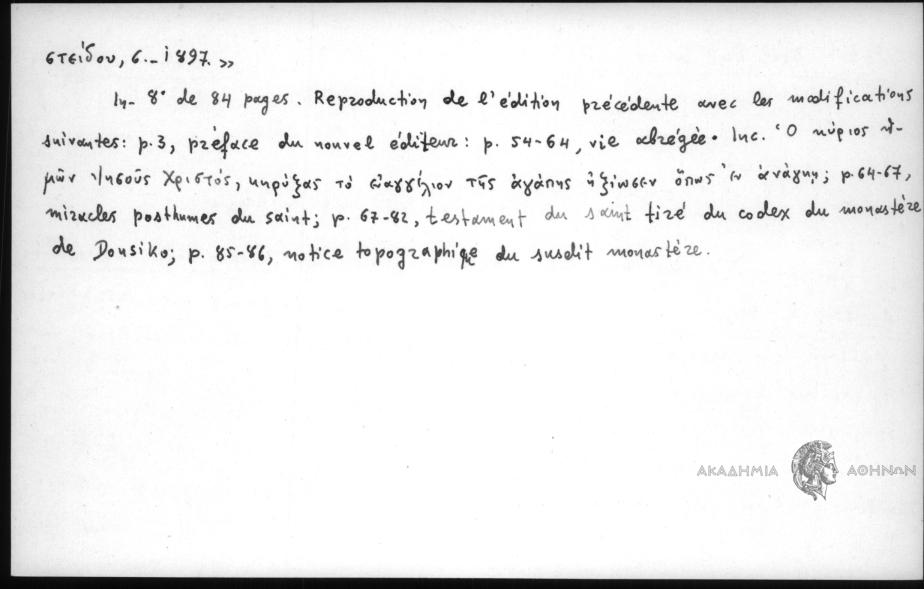 στείδου, 6._ 1897. »
In- 8° de 84 pages. Reproduction de l'édition précédente avec les modifications
suivantes: p.3, préface du nouvel éditeur: p. 54-64, vie abrégée. Inc. Ὁ κύριος ἡ-
μῶν Ἰησοῦς Χριστός, κηρύξας τὸ εὐαγγέλιον τῆς ἀγάπης ἠξίωσεν ὅπως ἐν ἀνάγκῃ; p.64-67,
miracles posthumes du saint; p. 67-82, testament du saint tiré du codex du monastère
de Dousiko; p. 85-86, notice topographique du susdit monastère.
ΑΚΑΔΗΜΙΑ ΑΘΗΝΩΝ